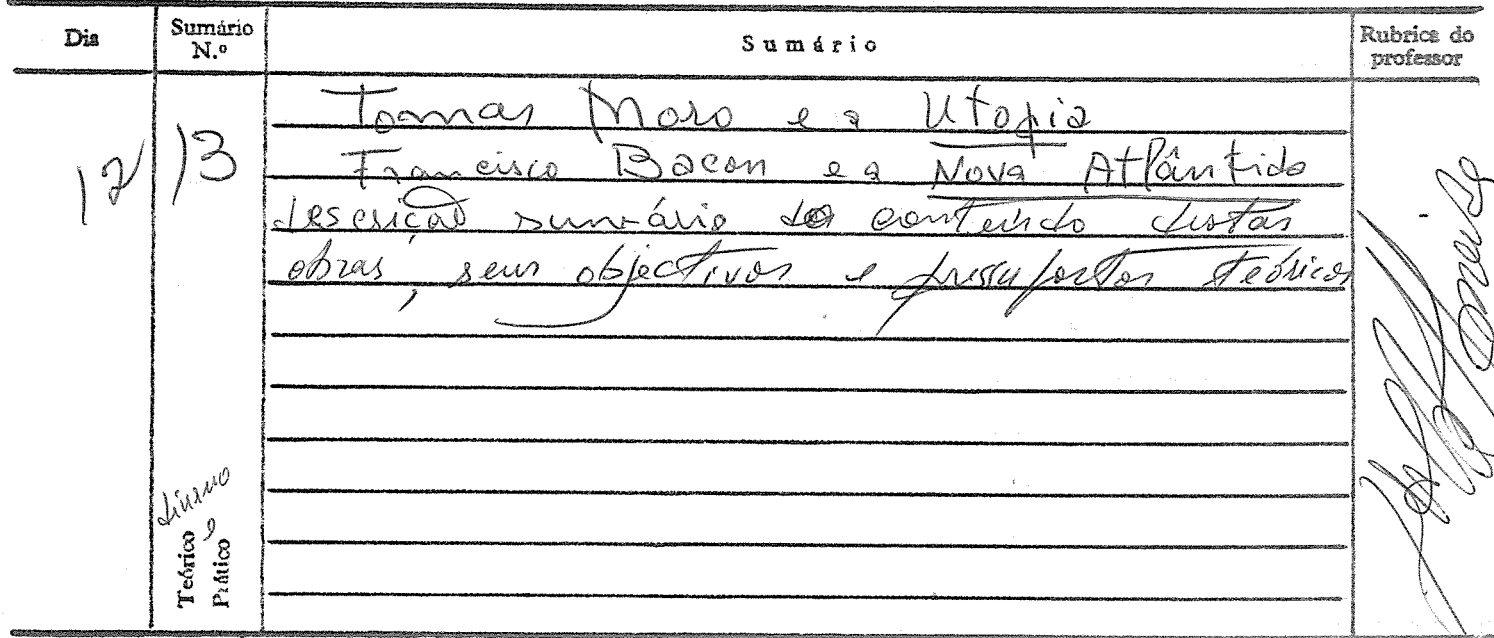 Dia
Sumário N.º
Sumário
Rubrica do professor
12
13
Tomas Moro e a Utopia
Francisco Bacon e a Nova Atlântida
descrição sumária do conteúdo destas
obras, seus objectivos e pressupostos teóricos
diurno
Teórico e
Prático